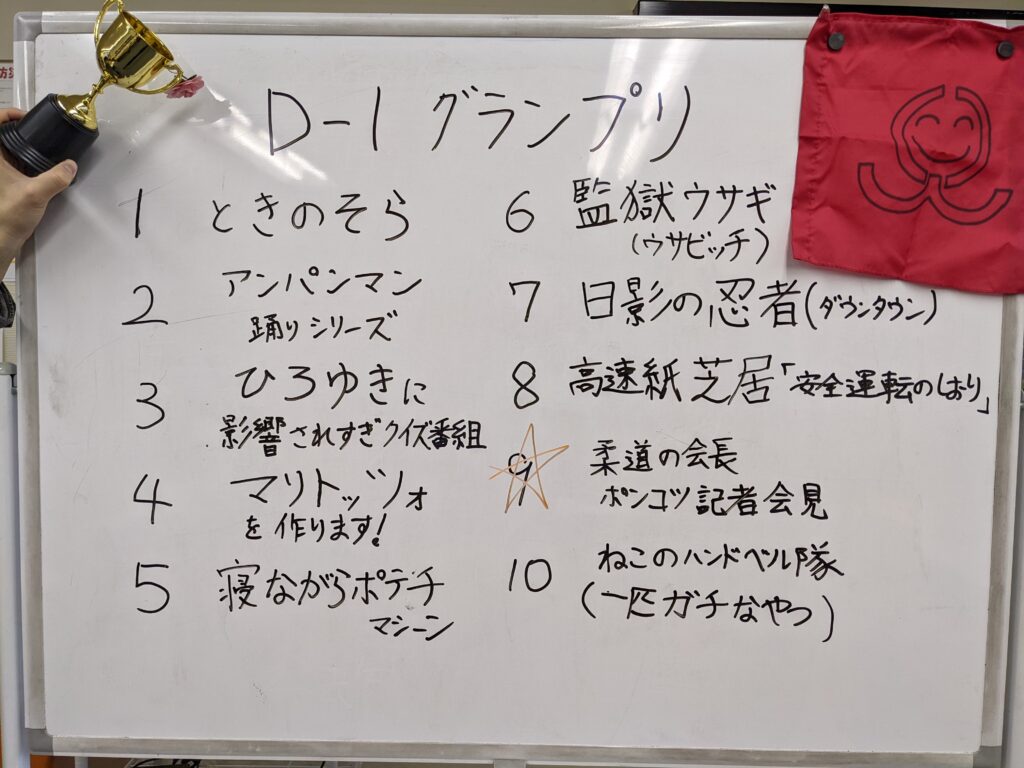 防災
D-1 グランプリ
1 ときのそら
2 アンパンマン
踊りシリーズ
3 ひろゆきに
影響されすぎクイズ番組
4 マリトッツォ
を作ります!
5 寝ながらポテチ
マシーン
6 監獄ウサギ
(ウサビッチ)
7 日影の忍者(ダウンタウン)
8 高速紙芝居「安全運転のしおり」
9 柔道の会長
ポンコツ記者会見
10 ねこのハンドベル隊
(一匹ガチなやつ)